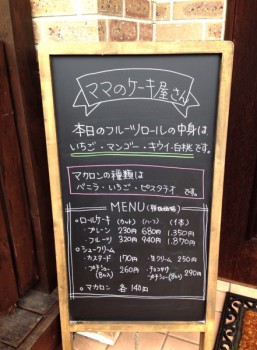 ママのケーキ屋さん
本日のフルーツロールの中身は
いちご・マンゴー・キウイ・白桃です。
マカロンの種類は
バニラ・いちご・ピスタチオ です。
MENU (税抜価格)
○ロールケーキ (カット) (ハーフ) (1本)
・プレーン 230円 680円 1,350円
・フルーツ 320円 940円 1,870円
○シュークリーム
・カスタード 170円 ・生クリーム 250円
・プチシュー(8コ入) 260円 ・チョコがけプチシュー(8コ入) 290円
○マカロン 各 140円